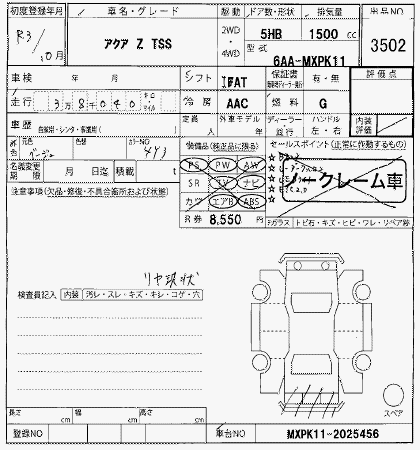 初度登録年月
車名・グレード
駆動
ドア数・形状
排気量
出品NO
R3/
10月
アクア Z TSS
2WD
・
4WD
5HB
1500 cc
型式
6AA-MXPK11
3502
車検
年 月
シフト
IFAT
保証書
有・無
評価点
走行
3万8千040
キロ
マイル
冷房
AAC
燃料
G
車歴
自家用・レンタ・
定員
人
外車モデル
年
ディーラー
並行
ハンドル
左・右
内装
評価
外色
元色
色替
カラーNO
ベージュ
4Y3
装備品(純正品に限る)
セールスポイント(正常に作動するもの)
PS
PW
AW
SR
TV
ナビ
カワ
エアB
ABS
クレーム車
名義変更
期限
月 日迄
積載
t
注意事項(欠品・修復・不具合箇所および状態)
R券
8,550円
ガラス
トビ石・キズ・ヒビ・ワレ・リペア跡
リヤ現状
検査員記入
内装
汚レ・スレ・キズ・キレ・コゲ・穴
スペア
長さ
cm
幅
cm
高さ
cm
登録NO
車台NO
MXPK11-2025456